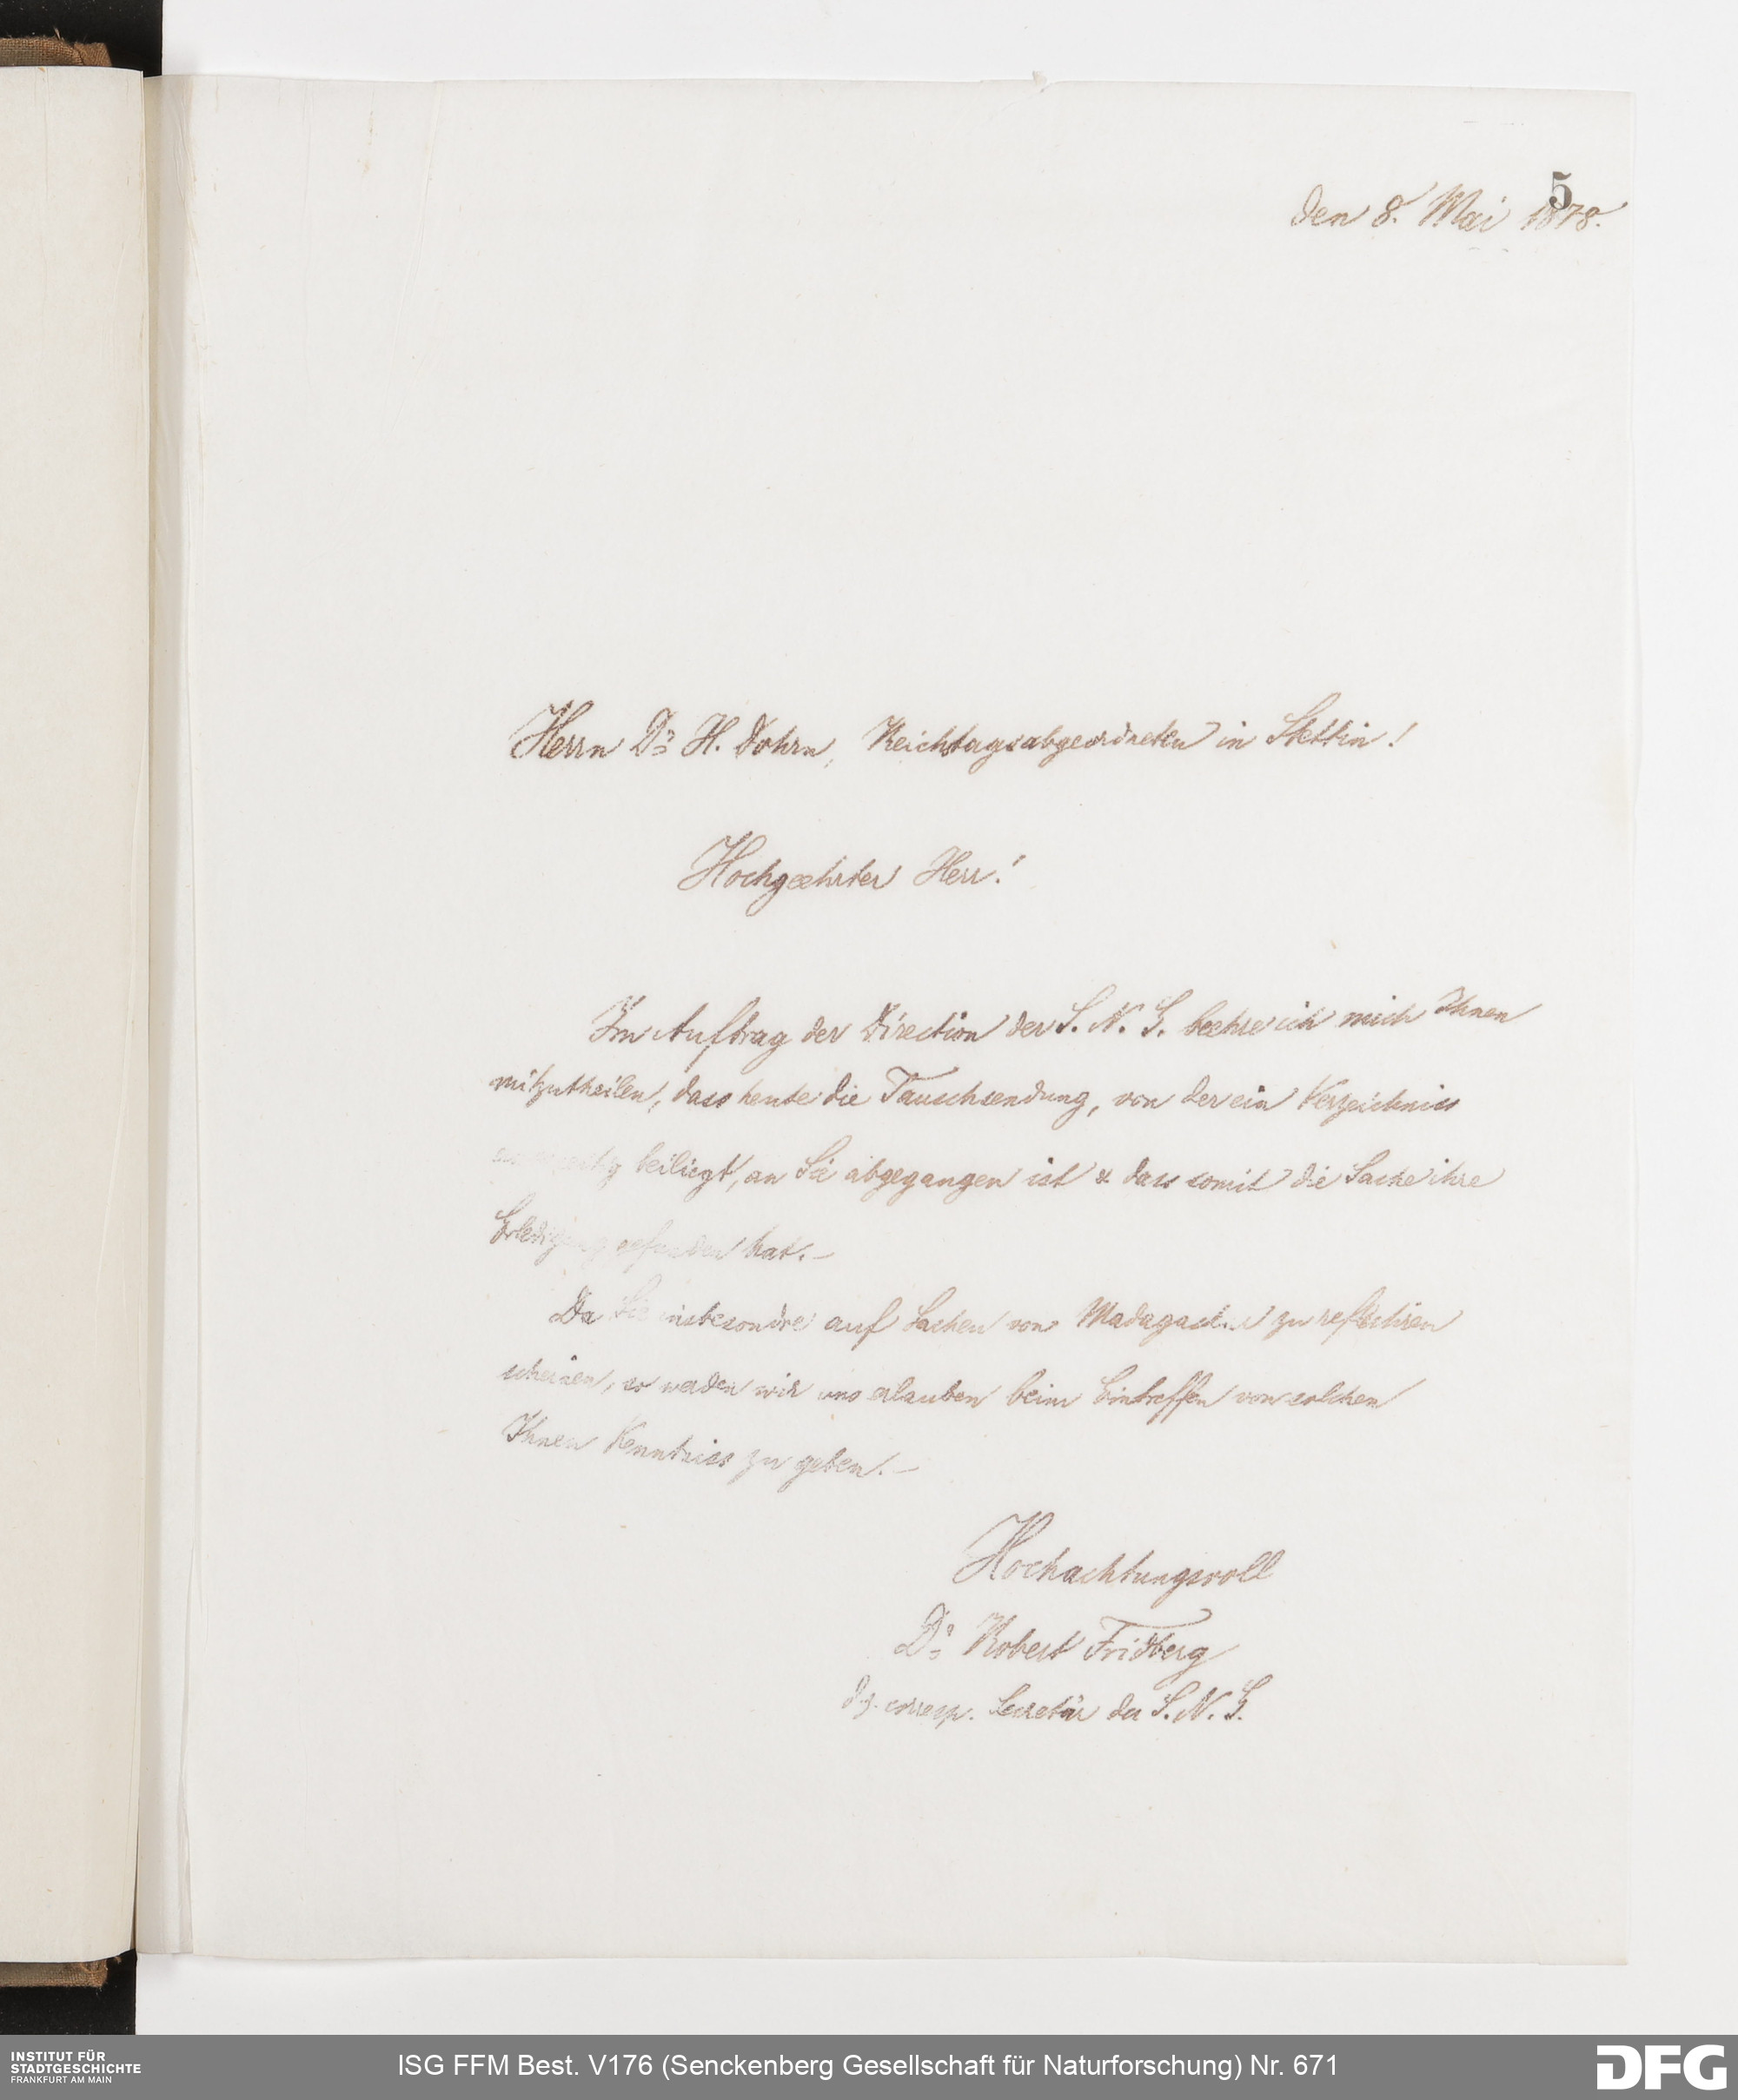 5
den 8. Mai 1878.
Herrn Dr. H. Dohrn, Reichstagsabgeordneten in Stettin!
Hochgeehrter Herr!
Im Auftrag der Direction der S. N. G. beehre ich mich Ihnen
mitzutheilen, dass heute die Tauschsendung, von der ein Verzeichniss
beiliegt, an Sie abgegangen ist & dass somit die Sache ihre
Erledigung gefunden hat. –
Da Sie insbesondre auf Sachen von Madagascar zu reflectiren
scheinen, so werden wir uns erlauben beim Eintreffen von solchen
Ihnen Kenntniss zu geben. –
Hochachtungsvoll
Dr. Robert Fridberg
d.z. corresp. Secretär der S. N. G.
INSTITUT FÜR
STADTGESCHICHTE
FRANKFURT AM MAIN
ISG FFM Best. V176 (Senckenberg Gesellschaft für Naturforschung) Nr. 671
DFG